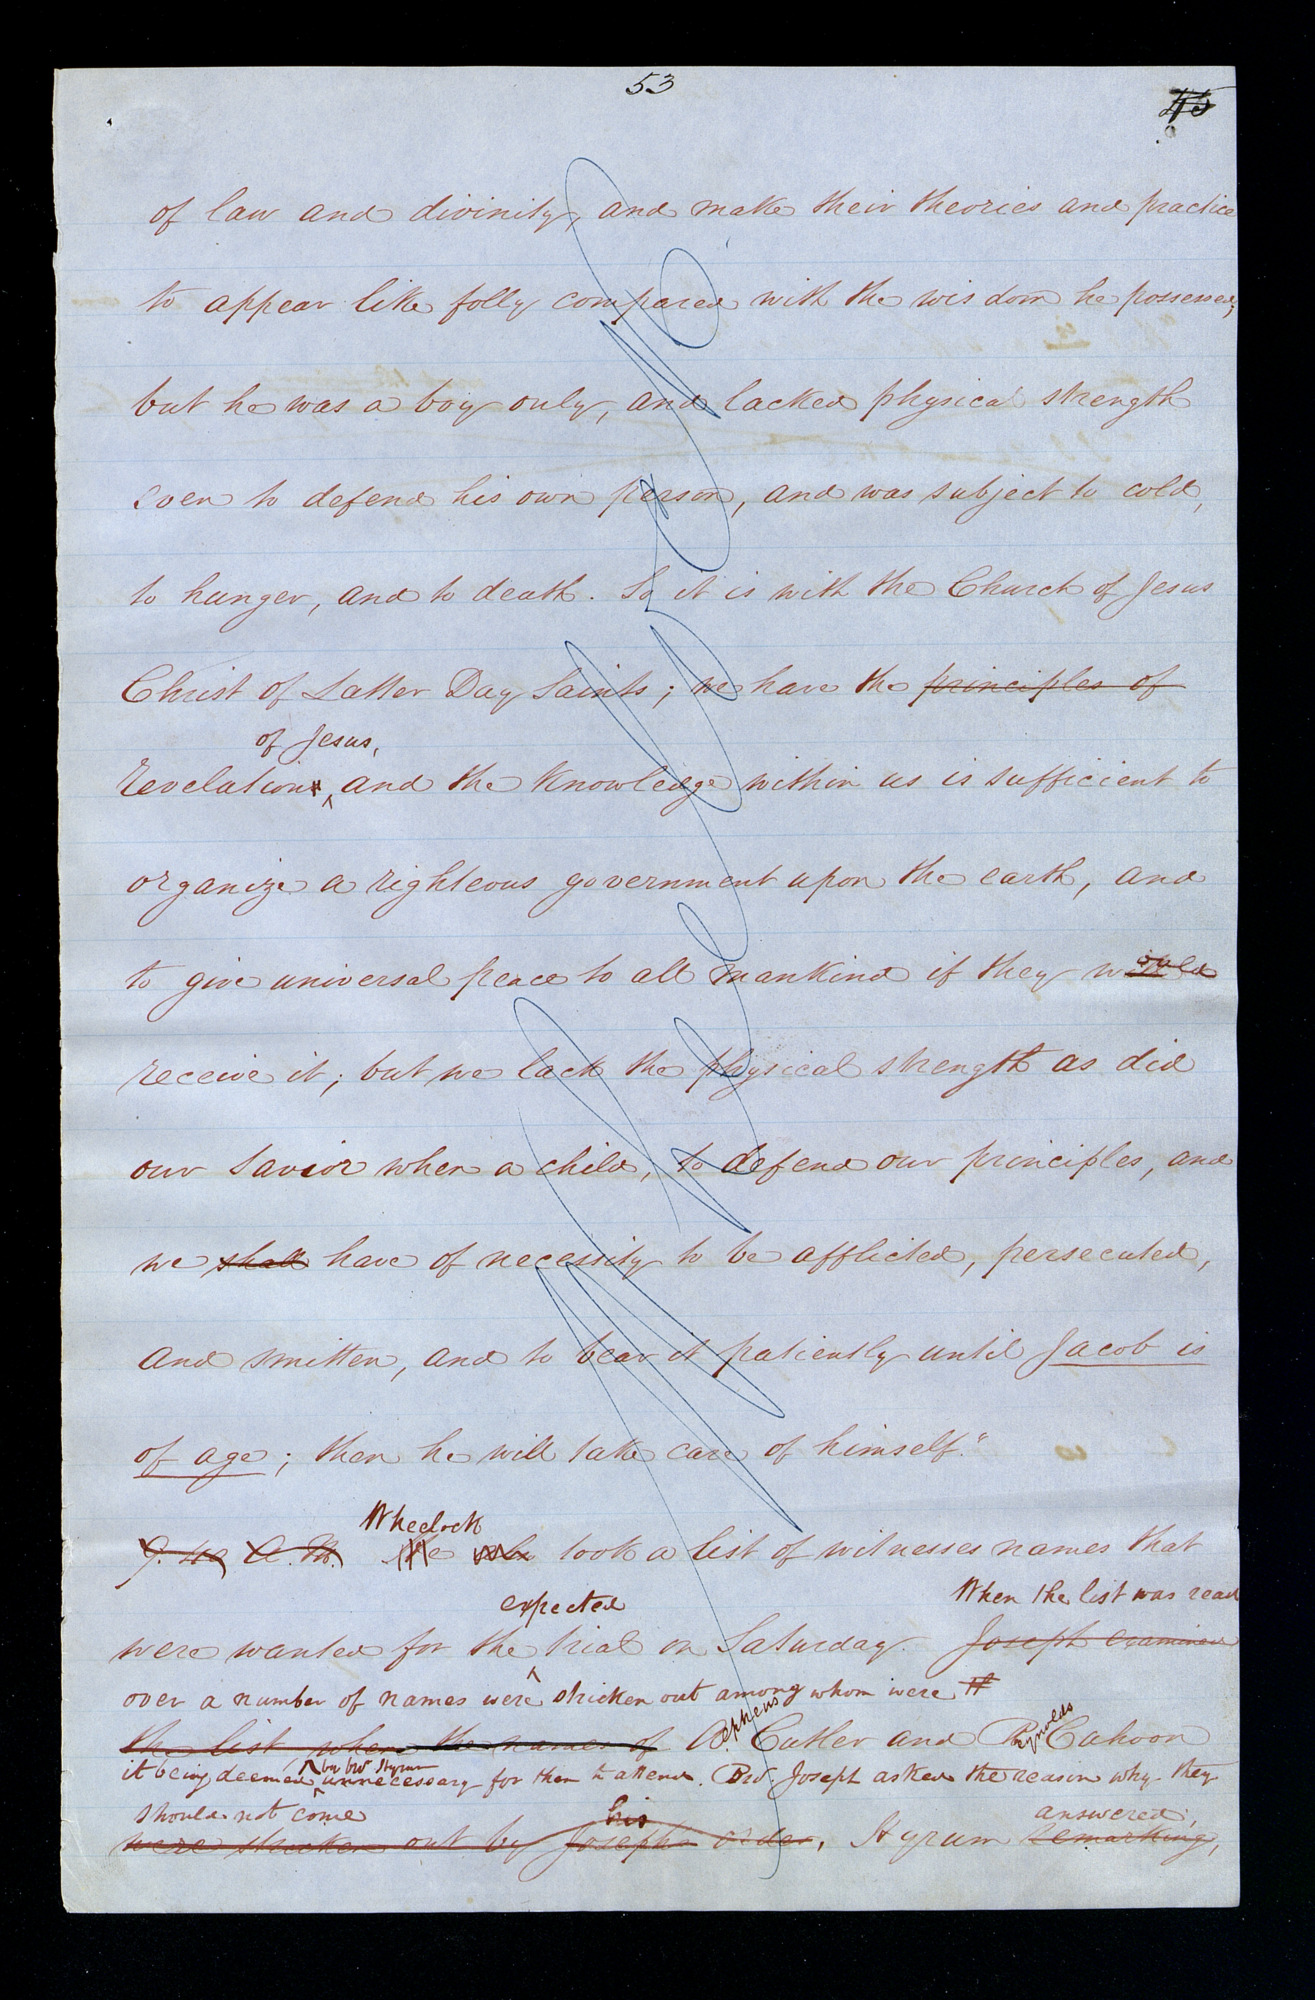 53
45
of law and divinity, and make their theories and practice
to appear like folly compared with the wisdom he possessed;
but he was a boy only, and lacked physical strength
even to defend his own person, and was subject to cold,
to hunger, and to death. So it is with the Church of Jesus
Christ of Latter Day Saints; we have the principles of
of Jesus,
revelations, and the knowledge within us is sufficient to
organize a righteous government upon the earth, and
to give universal peace to all mankind if they would
receive it; but we lack the physical strength as did
our Savior when a child, to defend our principles, and
we shall have of necessity to be afflicted, persecuted,
and smitten, and to bear it patiently until Jacob is
of age; then he will take care of himself."
Wheelock
9. 40 A.M. He took a list of witnesses names that
expected When the list was read
were wanted for the trial on Saturday. Joseph examined
over a number of names were stricken out among whom were
the list when the names of Alpheus Cutler and Reynolds Cahoon
by bro Hyrum
it being deemed unnecessary for them to attend. Bro. Joseph asked the reason why they
should not come his answered;
were stricken out by Joseph's order, Hyrum remarking,